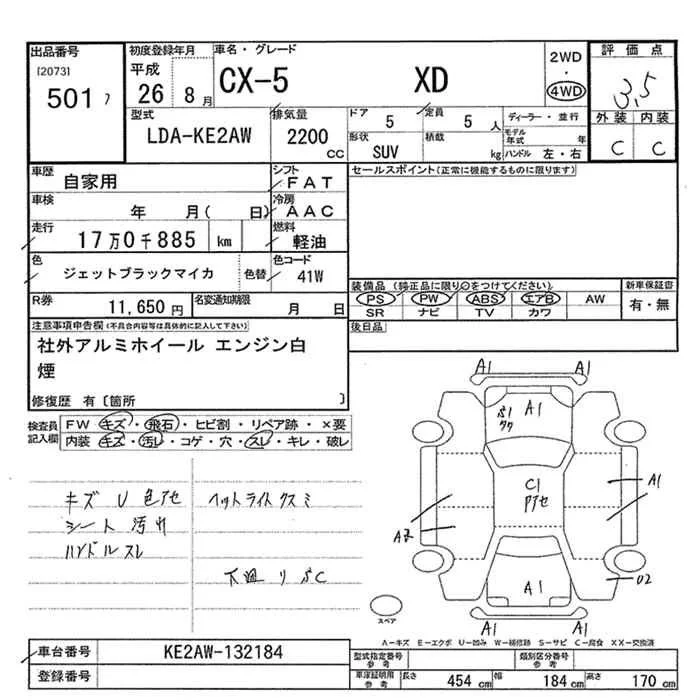 出品番号
[2073]
501 フ
初度登録年月
平成
26 8月
車名・グレード
CX-5 XD
2WD
・
4WD
評価点
3,5
外装 内装
C C
型式
LDA-KE2AW
排気量
2200
CC
ドア
5
定員
5 人
形状
SUV
積載
kg
ディーラー・並行
モデル年式 年
ハンドル 左・右
車歴
自家用
シフト
FAT
車検
年 月( 日)
冷房
AAC
走行
17万0千885 km
燃料
軽油
色
ジェットブラックマイカ
色替
色コード
41W
R券
11,650円
名変通知期限
月 日
セールスポイント(正常に機能するものに限ります)
装備品 (純正品に限り○をつけてください)
PS PW ABS エアB AW
SR ナビ TV カワ
新車保証書
有・無
後日品
注意事項申告欄(不具合内容等は具体的に記入して下さい)
社外アルミホイール エンジン白
煙
修復歴 有〔箇所 〕
検査員
記入欄
FW キズ・飛石・ヒビ割・リペア跡・×要
内装 キズ・汚レ・コゲ・穴・スレ・キレ・破レ
キズ U 色アセ
シート 汚れ
ハンドルスレ
ヘッドライトクスミ
下廻り
A1 A1
A1
C1
アセ
A1
A2
U2
A1
A1 A1
スペア
A−キズ E−エクボ U−凹み W−補修跡 S−サビ C−腐食 XX−交換済
車台番号
KE2AW-132184
登録番号
型式指定番号
参考
類別区分番号
参考
車庫証明用
参考
長さ 454 cm
幅 184 cm
高さ 170 cm